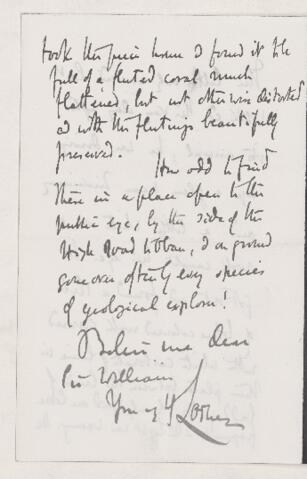 took the piece home I found it to be
full of a fluted coral much
flattened, but not otherwise distorted
and with the flutings beautifully
preserved.
How odd to find
these in a place open to the
public eye, by the side of the
High Road to Oban, & on ground
gone over often by every species
of geological explorer!
Believe me dear
Sir William
Yours